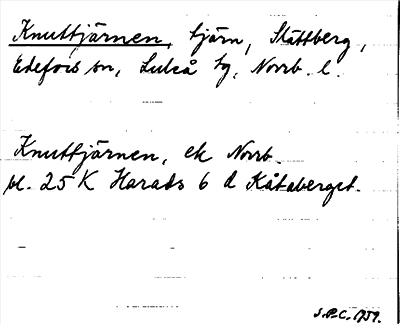 Knuttjärnen, tjärn, Slättberg,
Edefors sn, Luleå tg, Norrb. l.
Knuttjärnen, ek Norrb.
bl. 25 K Harads 6 d Kåtaberget.
S.P-C. 1959.